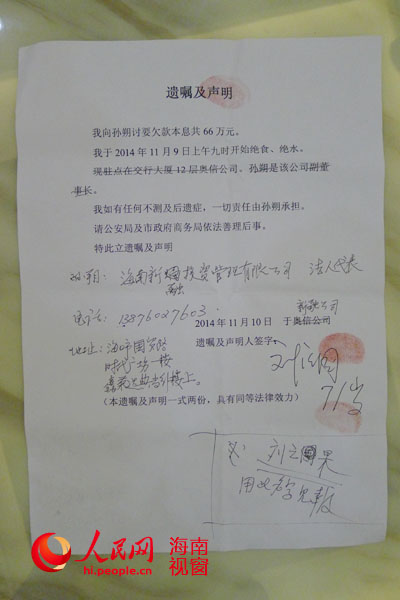 遗嘱及声明
我向孙朔讨要欠款本息共 66 万元。
我于 2014 年 11 月 9 日上午九时开始绝食、绝水。
现驻点在交行大厦 12 层奥信公司、孙朔是该公司副董
事长。
我如有任何不测及后遗症，一切责任由孙朔承担。
请公安局及市政府商务局依法善理后事。
特此立遗嘱及声明
孙朔：海南新融投资管理有限公司 法人
融
电话：13876027603
新融公司
2014 年 11 月 10 日 于奥信公司
地址：海口国贸路
遗嘱及声明人签字：
71岁
（本遗嘱及声明一式两份，具有同等法律效力）
人民网 海南视窗
hi.people.cn